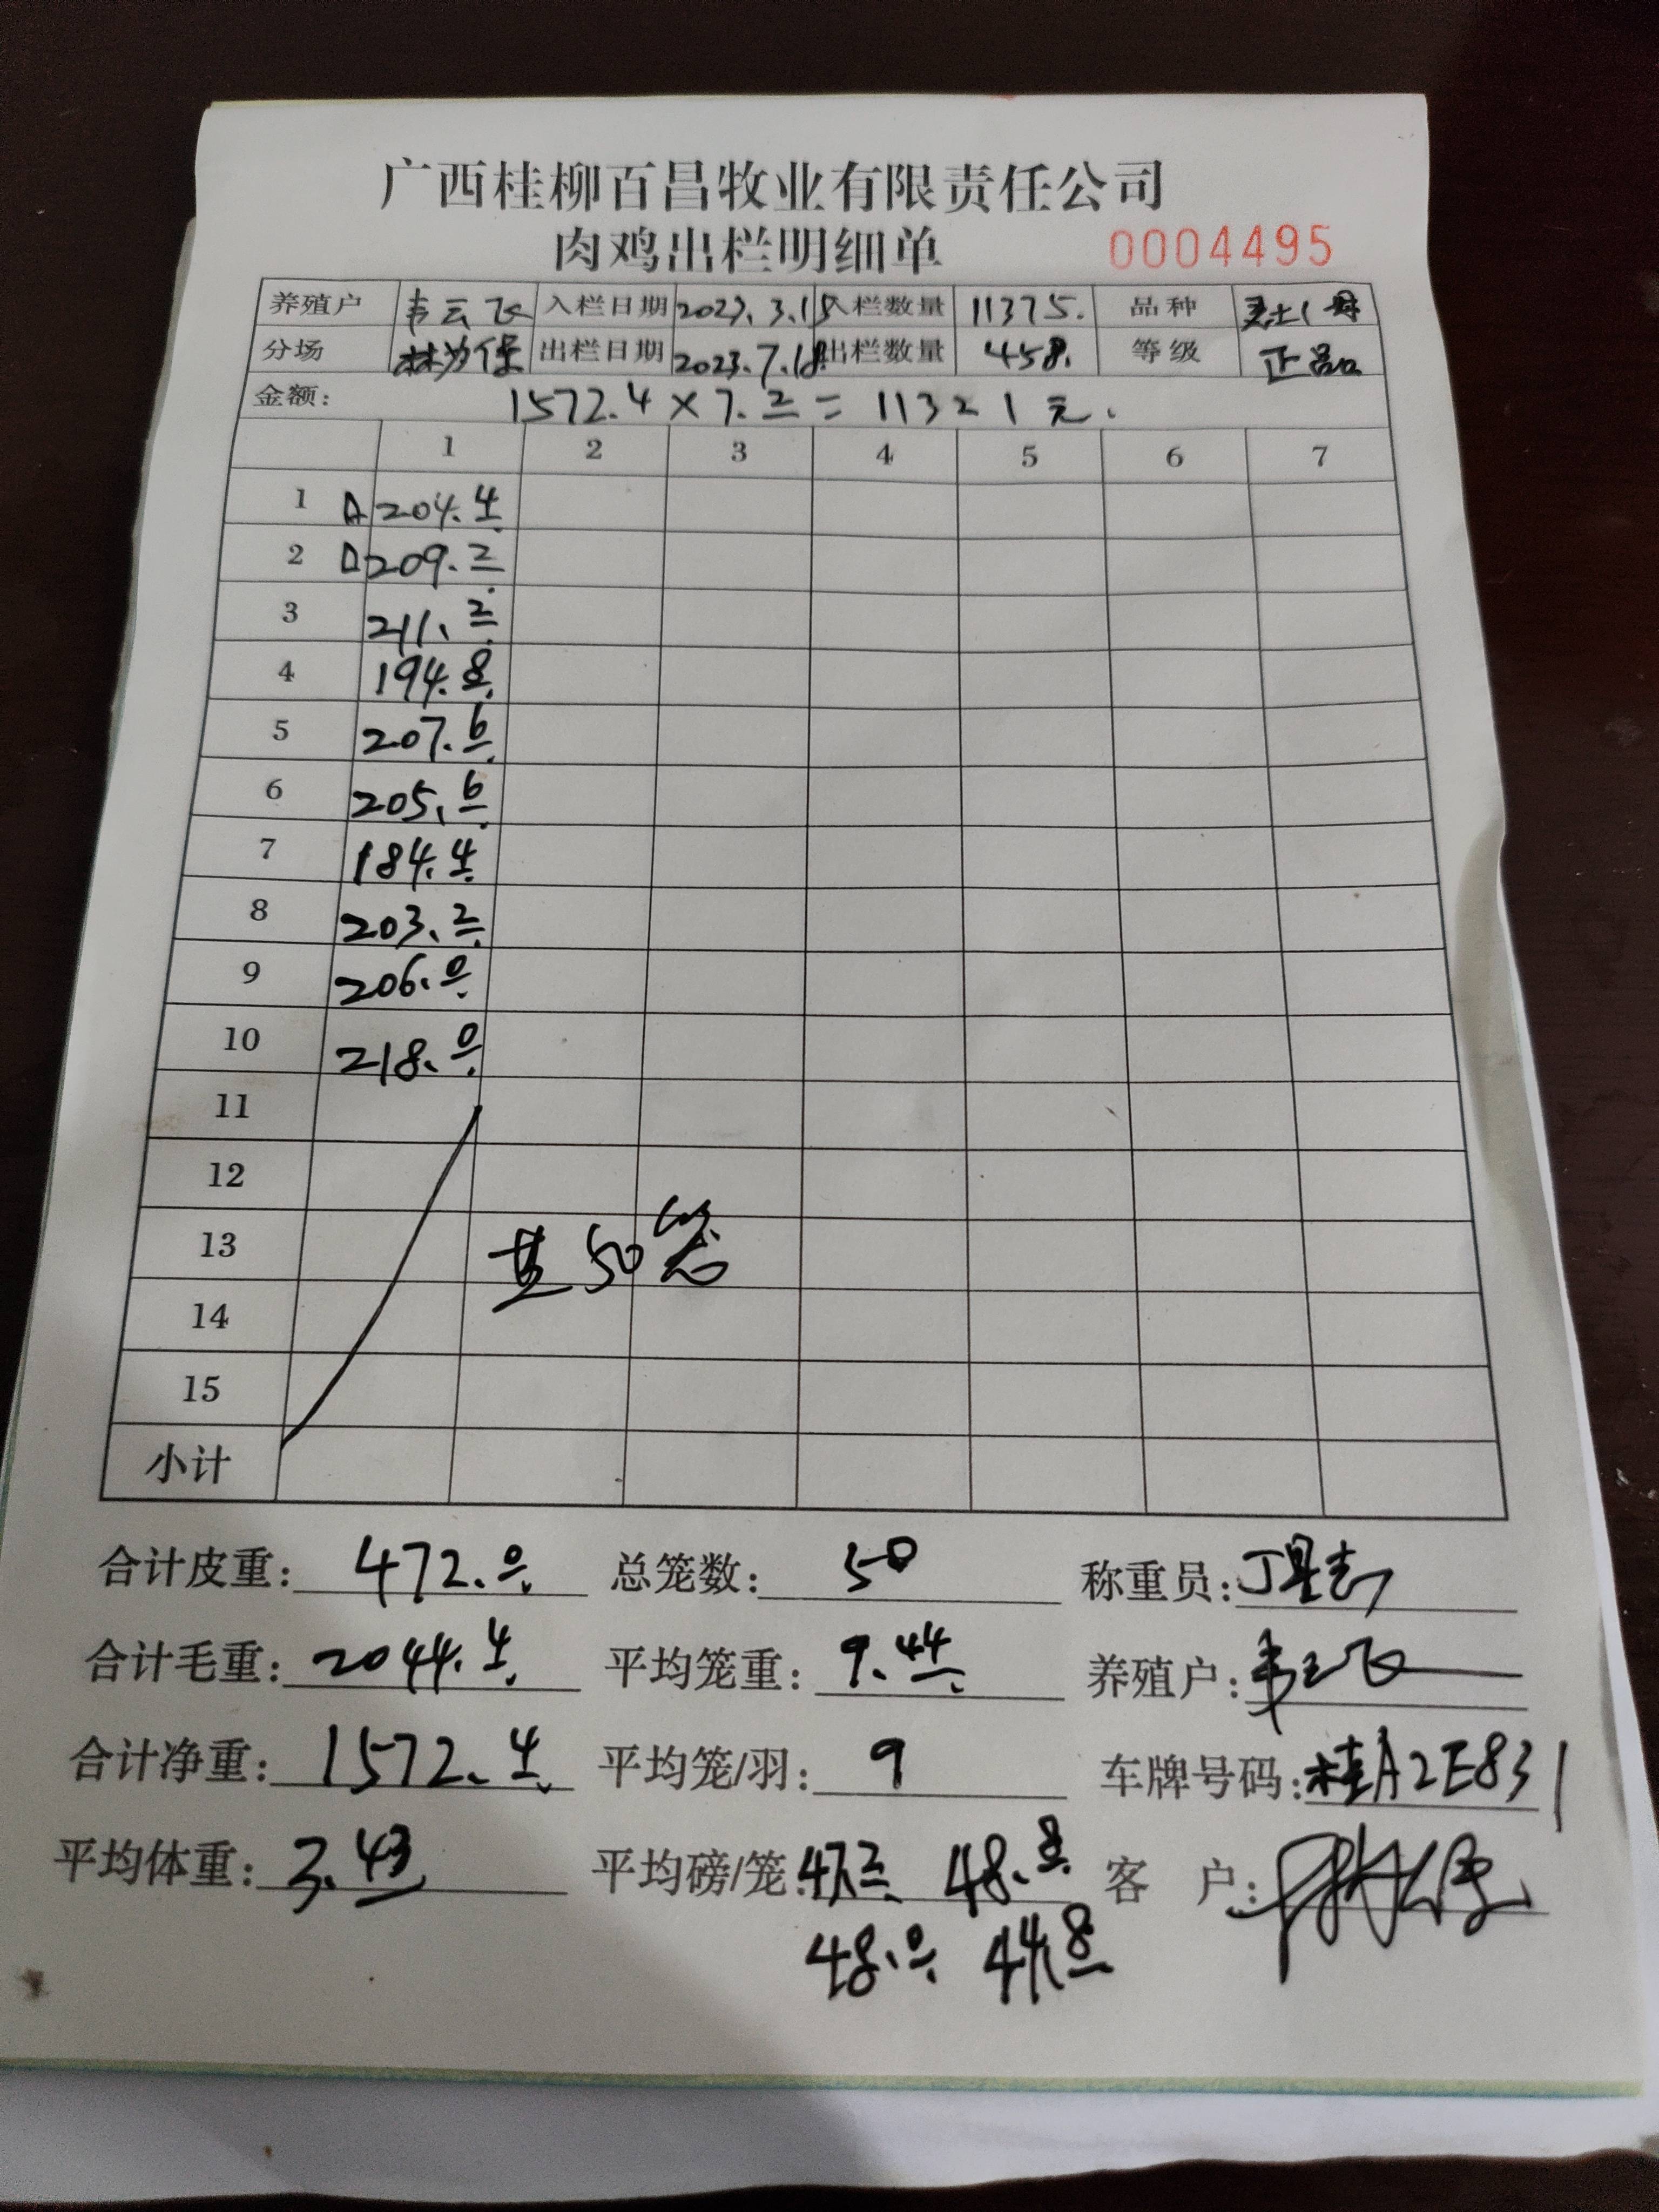 广西桂柳百昌牧业有限责任公司
肉鸡出栏明细单 0004495
养殖户 韦云飞 入栏日期 2023.3.15 入栏数量 11375. 品种
分场 出栏日期 2023.7.18 出栏数量 458. 等级 正品
金额: 1572.4×7.2=11321元.
1 2 3 4 5 6 7
1 204.4
2 209.2
3 211.2
4 194.8
5 207.6
6 205.6
7 184.4
8 203.2
9 206.0
10 218.0
11
12
13 共50笼
14
15
小计
合计皮重: 472.0 总笼数: 50 称重员:
合计毛重: 2044.4 平均笼重: 9.44 养殖户: 韦云飞
合计净重: 1572.4 平均笼/羽: 9 车牌号码: 桂A2E831
平均体重: 3.43 平均磅/笼: 47.2 48.8 客 户:
48.0 44.8